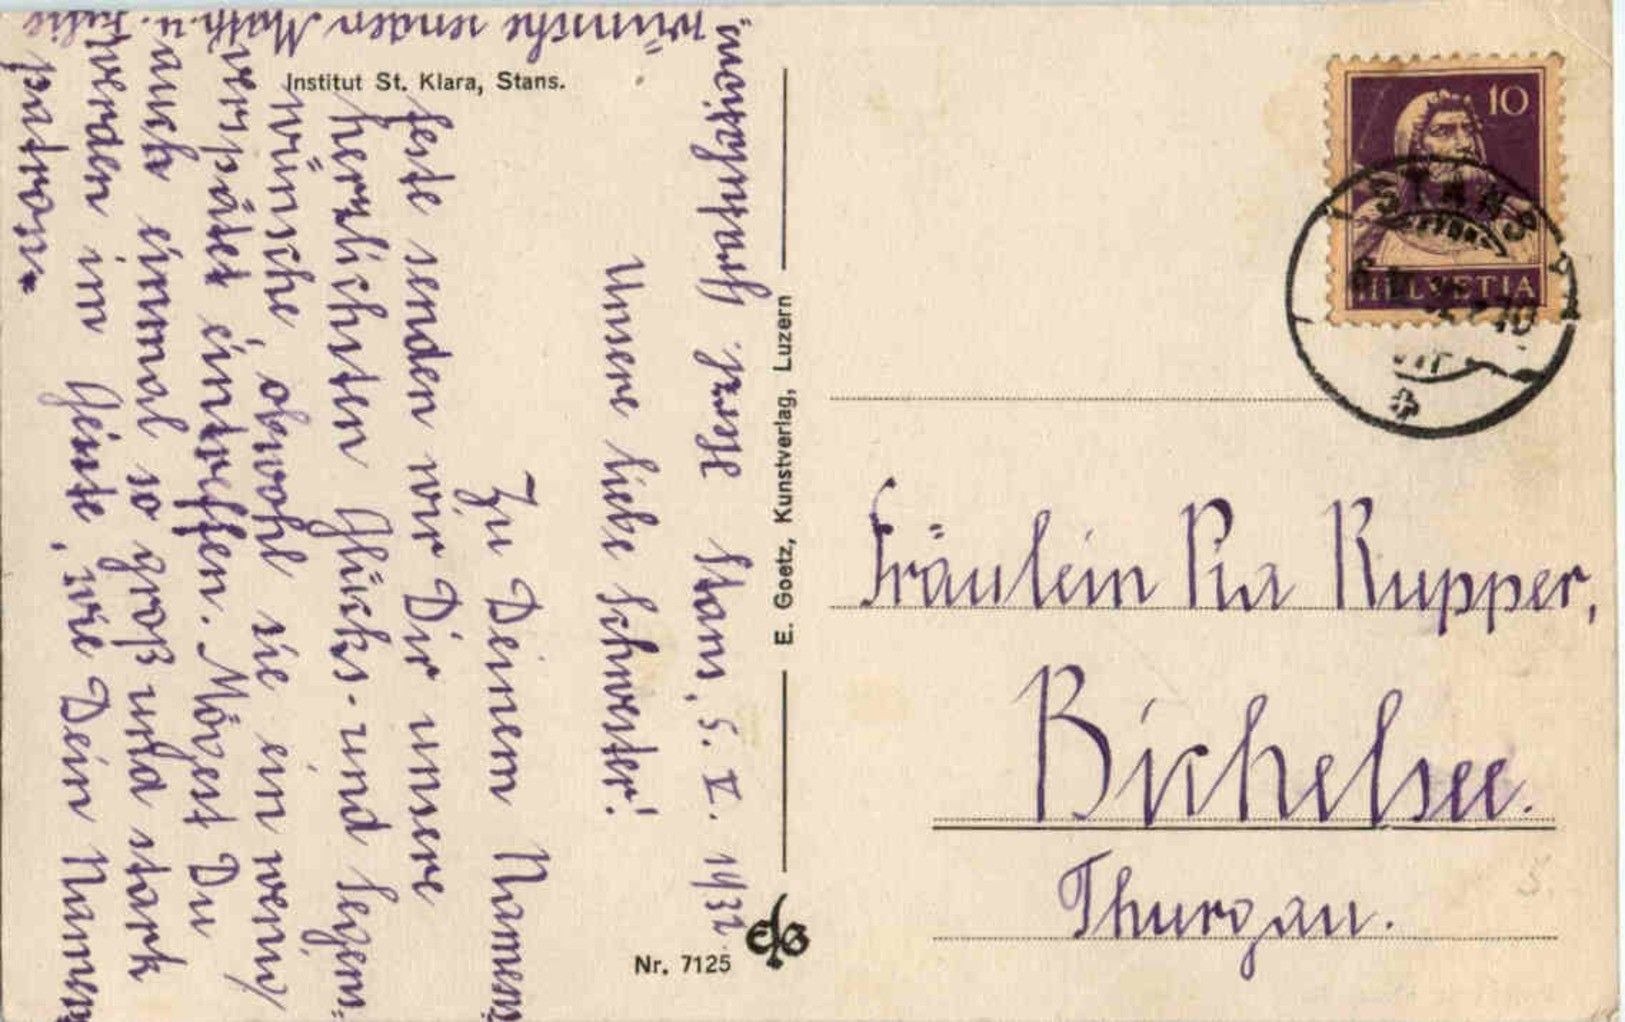 Institut St. Klara, Stans.
Herzl. Gratulations-
wünsche senden Math. u.
Stans, 5. I. 1932.
Unsere liebe Schwester!
Zu Deinem Namens-
feste senden wir Dir unsere
herzlichsten Glücks- und Segens-
wünsche, obwohl sie ein wenig
verspätet eintreffen. Mögest Du
auch einmal so groß und stark
werden im Geiste, wie Dein Namens-
patron
E. Goetz, Kunstverlag, Luzern
Nr. 7125
10
HELVETIA
STANS
Fräulein Pia Rupper,
Bichelsee.
Thurgau.